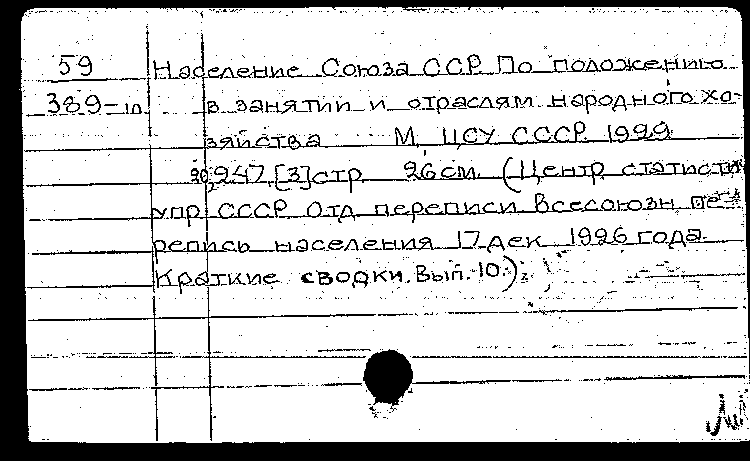 59 Население Союза ССР. По положению
389-10 в занятии и отраслям народного хо-
зяйства М, ЦСУ СССР. 1929
20,247,[3]стр. 26см. (Центр. статисти
упр. СССР. Отд. переписи. Всесоюзн. пе-
репись населения 17 дек 1926 года
Краткие сводки. Вып. 10.)